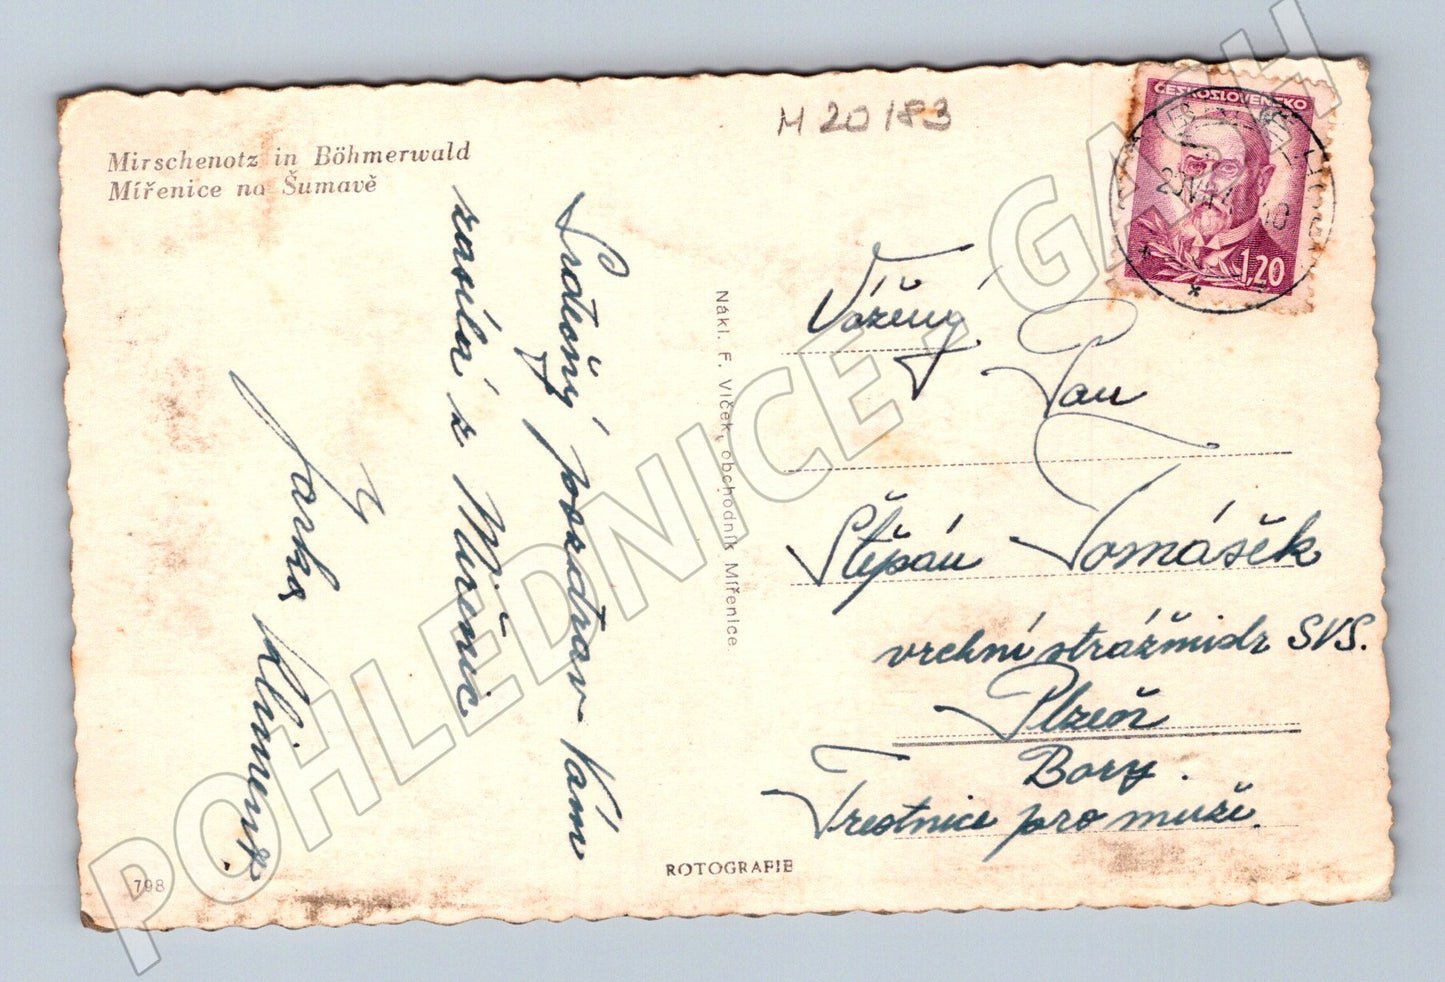 Mirschenotz in Böhmerwald
Mířenice na Šumavě
M 20183
ČESKOSLOVENSKO
1,20
Srdečný pozdrav Vám
zasílá z Miřenic
Jarka
Nákl. F. Vlček, obchodník Mířenice
Vážený
Pan
Štěpán Tomášek
vrchní strážmistr SVS.
Plzeň
Bory.
Trestnice pro muže.
ROTOGRAFIE
798
POHLEDNICE - GASH